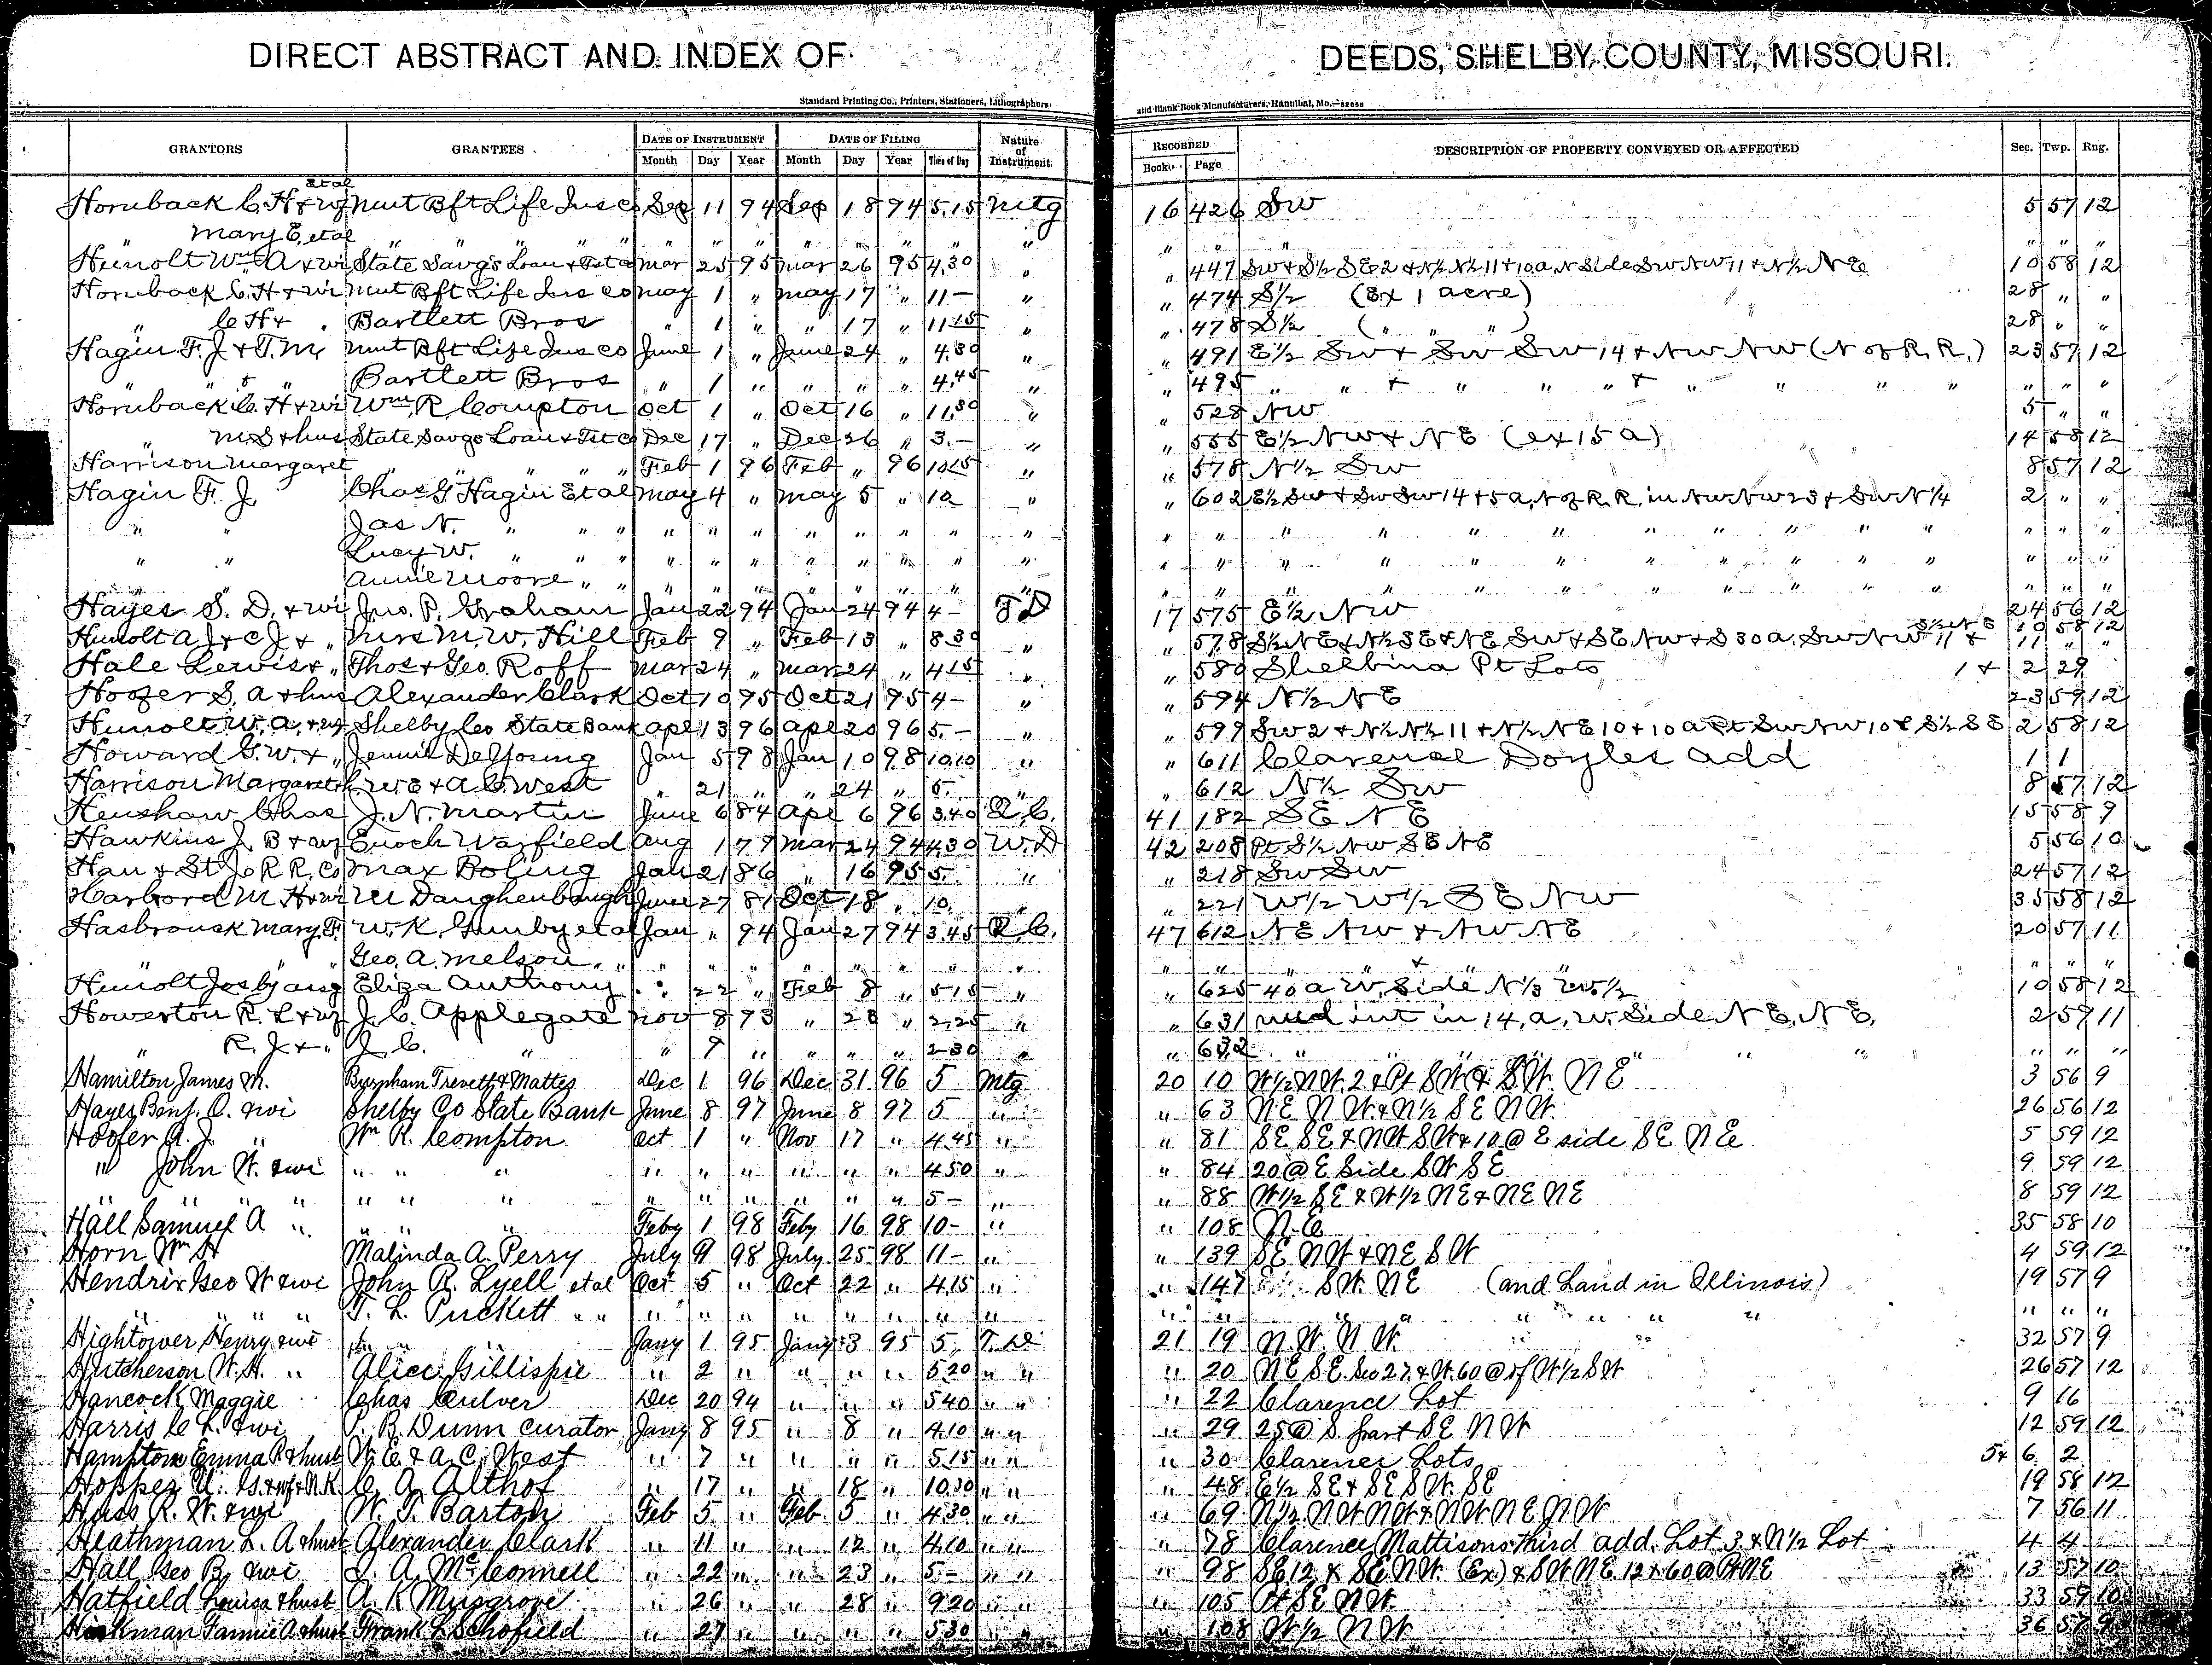 DIRECT ABSTRACT AND INDEX OF DEEDS, SHELBY COUNTY, MISSOURI.
Standard Printing Co., Printers, Stationers, Lithographers, and Blank Book Manufacturers, Hannibal, Mo.
GRANTORS GRANTEES DATE OF INSTRUMENT DATE OF FILING Nature of Instrument. RECORDED DESCRIPTION OF PROPERTY CONVEYED OR AFFECTED Sec. Twp. Rng.
Month Day Year Month Day Year Time of Day Book Page
et al
Hornback C. H & wf Mut Bft Life Ins Co Sep 11 94 Sep 18 94 5.15 Mtg 16 426 SW 5 57 12
" Mary E, et al " " " " " " " " " " " " " " " " " "
Hunolt Wm A & wi State Savgs Loan & Tst Co Mar 25 95 Mar 26 95 4.30 " " 447 SW & S½ SE 2 & N½ N½ 11 & 10 a N Side SW NW 11 & N½ NE 10 58 12
Hornback C. H & wi Mut Bft Life Ins Co May 1 " May 17 " 11 - " " 474 S½ (Ex 1 acre) 28 " "
" C H & " Bartlett Bros " 1 " " 17 " 11.15 " " 478 S½ ( " " " ) 28 " "
Hagin F. J. & T. M. Mut Bft Life Ins Co June 1 " June 24 " 4.30 " " 491 E½ SW & SW SW 14 & NW NW (N of R. R.) 23 57 12
" & " Bartlett Bros " 1 " " " " 4.45 " " 495 " " & " " " & " " " " " " "
Hornback C. H & wi Wm R Compton Oct 1 " Oct 16 " 11.30 " " 528 NW 5 " "
" M. S & hus State Savgs Loan & Tst Co Dec 17 " Dec 26 " 3. - " " 555 E½ NW & NE (ex 15 a) 14 58 12
Harrison Margaret " " " " Feb 1 96 Feb " 96 10.15 " " 578 N½ SW 8 57 12
Hagin F. J. Chas G Hagin Et al May 4 " May 5 " 10 " " 602 E½ SW & SW SW 14 & 5 a, N of R. R. in NW NW 23 & SW N¼ 2 " "
" " Jas N. " " " " " " " " " " " " " " " " " " " " " " " " "
" " Lucy W. " " " " " " " " " " " " " " " " " " " " " " " " "
" " Annie Moore " " " " " " " " " " " " " " " " " " " " " " "
Hayes S. D. & wi Jno. P. Graham Jan 22 94 Jan 24 94 4 - T D 17 575 E½ NW 24 56 12
Hunolt A J & C J & " Mrs M. W. Hill Feb 9 " Feb 13 " 8.30 " " 578 S½ NE & N½ SE & NE SW & SE NW & S 30 a. SW NW 11 & S½ NE 10 58 12
11 " "
Hale Lewis & " Thos & Geo. Roff Mar 24 " Mar 24 " 4.15 " " 580 Shelbina Pt Lots 1 & 2 29
Hoofer S. A & hus Alexander Clark Oct 10 95 Oct 21 95 4 - " " 594 N½ NE 23 59 12
Hunolt W. A. & wf Shelby Co State Bank Apl 13 96 Apl 20 96 5. - " " 599 SW 2 & N½ N½ 11 & N½ NE 10 & 10 a Pt SW NW 10 & S½ SE 2 58 12
Howard G. W. & " Jennie DeYoung Jan 5 98 Jan 10 98 10.10 " " 611 Clarence Doyles add 1 1
Harrison Margaret W E & A. C. West " 21 " " 24 " 5. " " 612 N½ SW 8 57 12
Henshaw Chas J. N. Martin June 6 84 Apl 6 96 3.40 Q. C. 41 182 SE NE 15 58 9
Hawkins J. B & wf Enoch Warfield Aug 1 79 Mar 24 94 4.30 W. D 42 208 Pt S½ NW SE NE 5 56 10
Han & St Jo R R. Co Max Boling Jan 21 86 " 16 95 5. " " 218 SW SW 24 57 12
Harbord M H & wi M Daughenbaugh June 27 81 Oct 18 " 10. " " 221 W½ W½ SE NW 35 58 12
Hasbrouck Mary F. W. K. Gunby et al Jan " 94 Jan 27 94 3.45 Q. C. 47 612 NE NW & NW NE 20 57 11
" " " Geo. A. Melson " " " " " " " " " " " " " " & " " " " "
Hunolt Jos by asg Eliza Anthony " 22 " Feb 8 " 5.15 " " 625 40 a W. Side N⅓ W½ 10 58 12
Howerton R. L & wf J. C. Applegate Nov 8 73 " 28 " 2.25 " " 631 und int in 14, a, W. Side NE, NE, 2 59 11
" R. J & " J. C. " " 9 " " " " 2.30 " " 632 " " " " " " " " "
Hamilton James M. Burnham Trevett & Mattes Dec 1 96 Dec 31 96 5 Mtg 20 10 W½ NW. 2 & Pt SW & SW. NE 3 56 9
Hayes Benj. O. & wi Shelby Co State Bank June 8 97 June 8 97 5 " " 63 NE NW & N½ SE NW 26 56 12
Hoofer A. J. " Wm R. Compton Oct 1 " Nov 17 " 4.45 " " 81 SE SE & NW SW & 10 @ E side SE NE 5 59 12
" John W. & wi " " " " " " " " " 4.50 " " 84 20 @ E Side SW SE 9 59 12
" " " " " " " " " " " " " 5 - " " 88 W½ SE & W½ NE & NE NE 8 59 12
Hall Samuel A " " " " Feby 1 98 Feby 16 98 10 - " " 108 N. E. 35 58 10
Horn Wm H Malinda A. Perry July 9 98 July 25 98 11 - " " 139 SE NW & NE SW 4 59 12
Hendrix Geo W & wi John R. Lyell et al Oct 5 " Oct 22 " 4.15 " " 147 SW. NE (and Land in Illinois) 19 57 9
" " " " T. L. Puckett " " " " " " " " " " " " " " " " " " " " "
Hightower Henry & wi " " Jany 1 95 Jany 3 95 5 T. D. 21 19 N. W. N W. 32 57 9
Hutcherson W. H. " Alice Gillispie " 2 " " " " 5.20 " " " 20 NE SE. Sec 27. & W. 60 @ of W½ SW 26 57 12
Hancock Maggie Chas Culver Dec 20 94 " " " 5.40 " " " 22 Clarence Lot 9 16
Harris C L. & wi P. B. Dunn curator Jany 8 95 " 8 " 4.10 " " " 29 25 @ S. part SE NW 12 59 12
Hampton Emma R & husb W. E & A. C. West " 7 " " " " 5.15 " " " 30 Clarence Lots 5 & 6 2
Hopper G. & wf & N. K. C. A. Althof " 17 " " 18 " 10.30 " " " 48 E½ SE & SE SW. SE 19 58 12
Huss R. W. & wi W. T. Barton Feb 5 " Feb 5 " 4.30 " " " 69 N½ NW NW & NW NE NW 7 56 11
Heathman L. A & husb Alexander Clark " 11 " " 12 " 4.10 " " " 78 Clarence Mattisons third add. Lot 3 & N½ Lot 4 4
Hall Geo B. & wi J. A. McConnell " 22 " " 23 " 5 - " " " 98 SE 12 & SE NW (Ex) & SW NE 12 & 60 @ Pt NE 13 57 10
Hatfield Louisa & husb A. K Musgrove " 26 " " 28 " 9.20 " " " 105 Pt SE NW 33 59 10
Hickman Fannie A & husb Frank L Schofield " 27 " " " " 5.30 " " " 108 W½ NW 36 57 9